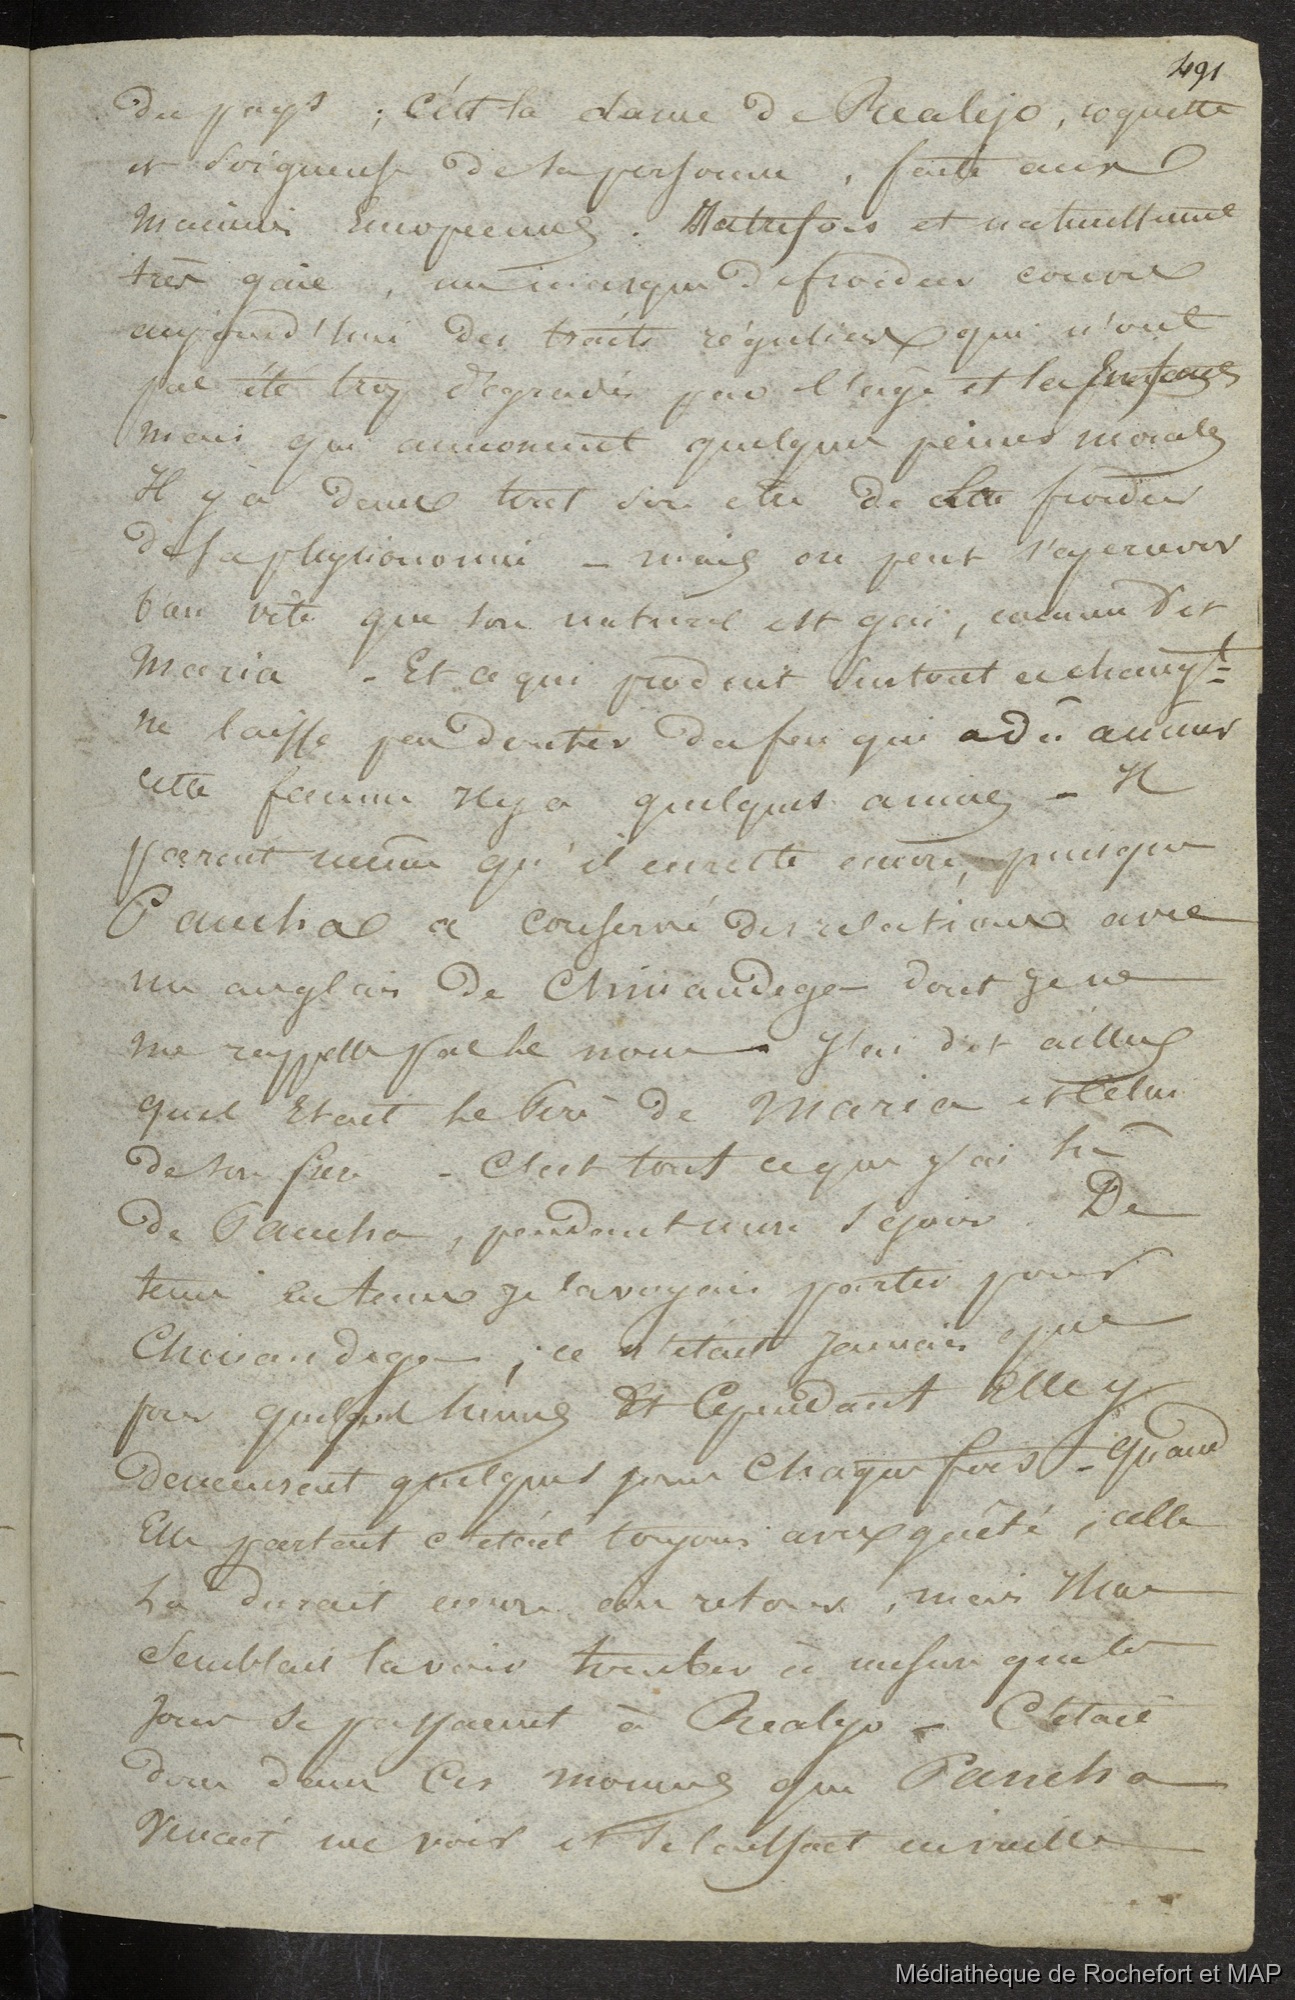 491
du pays ; c'est la dame de Realejo, coquette
et soigneuse de sa personne, faite aux
manières Européennes. Autrefois et naturellement
très gaie, un masque de froideur couvre
aujourd'hui des traits réguliers qui n'ont
pas été trop dégradés par l'âge et les Enfans
mais qui annoncent quelques peines morales
Il y a dans tout son être de cette froideur
de sa physionomie - mais on peut s'apercevoir
bien vite que son naturel est gai, comme dit
Maria - Et ce qui produit surtout ce changt
ne laisse pas douter du feu qui a dû animer
cette femme Il y a quelques années - Il
parait même qu'il en reste encore, puisque
Pancha a conservé des relations avec
un anglais de Chinandega dont je ne
me rappelle pas le nom - J'ai dit ailleurs
quel Etait le Père de Maria et Celui
de son frère - C'est tout ce que j'ai sû
de Pancha, pendant mon séjour. De
tems en tems je la voyais partir pour
Chinandega ; ce n'était jamais que
pour quelques heures Et Cependant Elle y
demeurait quelques jours Chaque fois - Quand
Elle partait c'était toujours avec gaîté ; celle
là durait encore au retour, mais Il me
semblait la voir tomber à mesure que les
jours se passaient à Realejo - C'était
donc dans ces momens que Pancha
venait me voir et se laissait